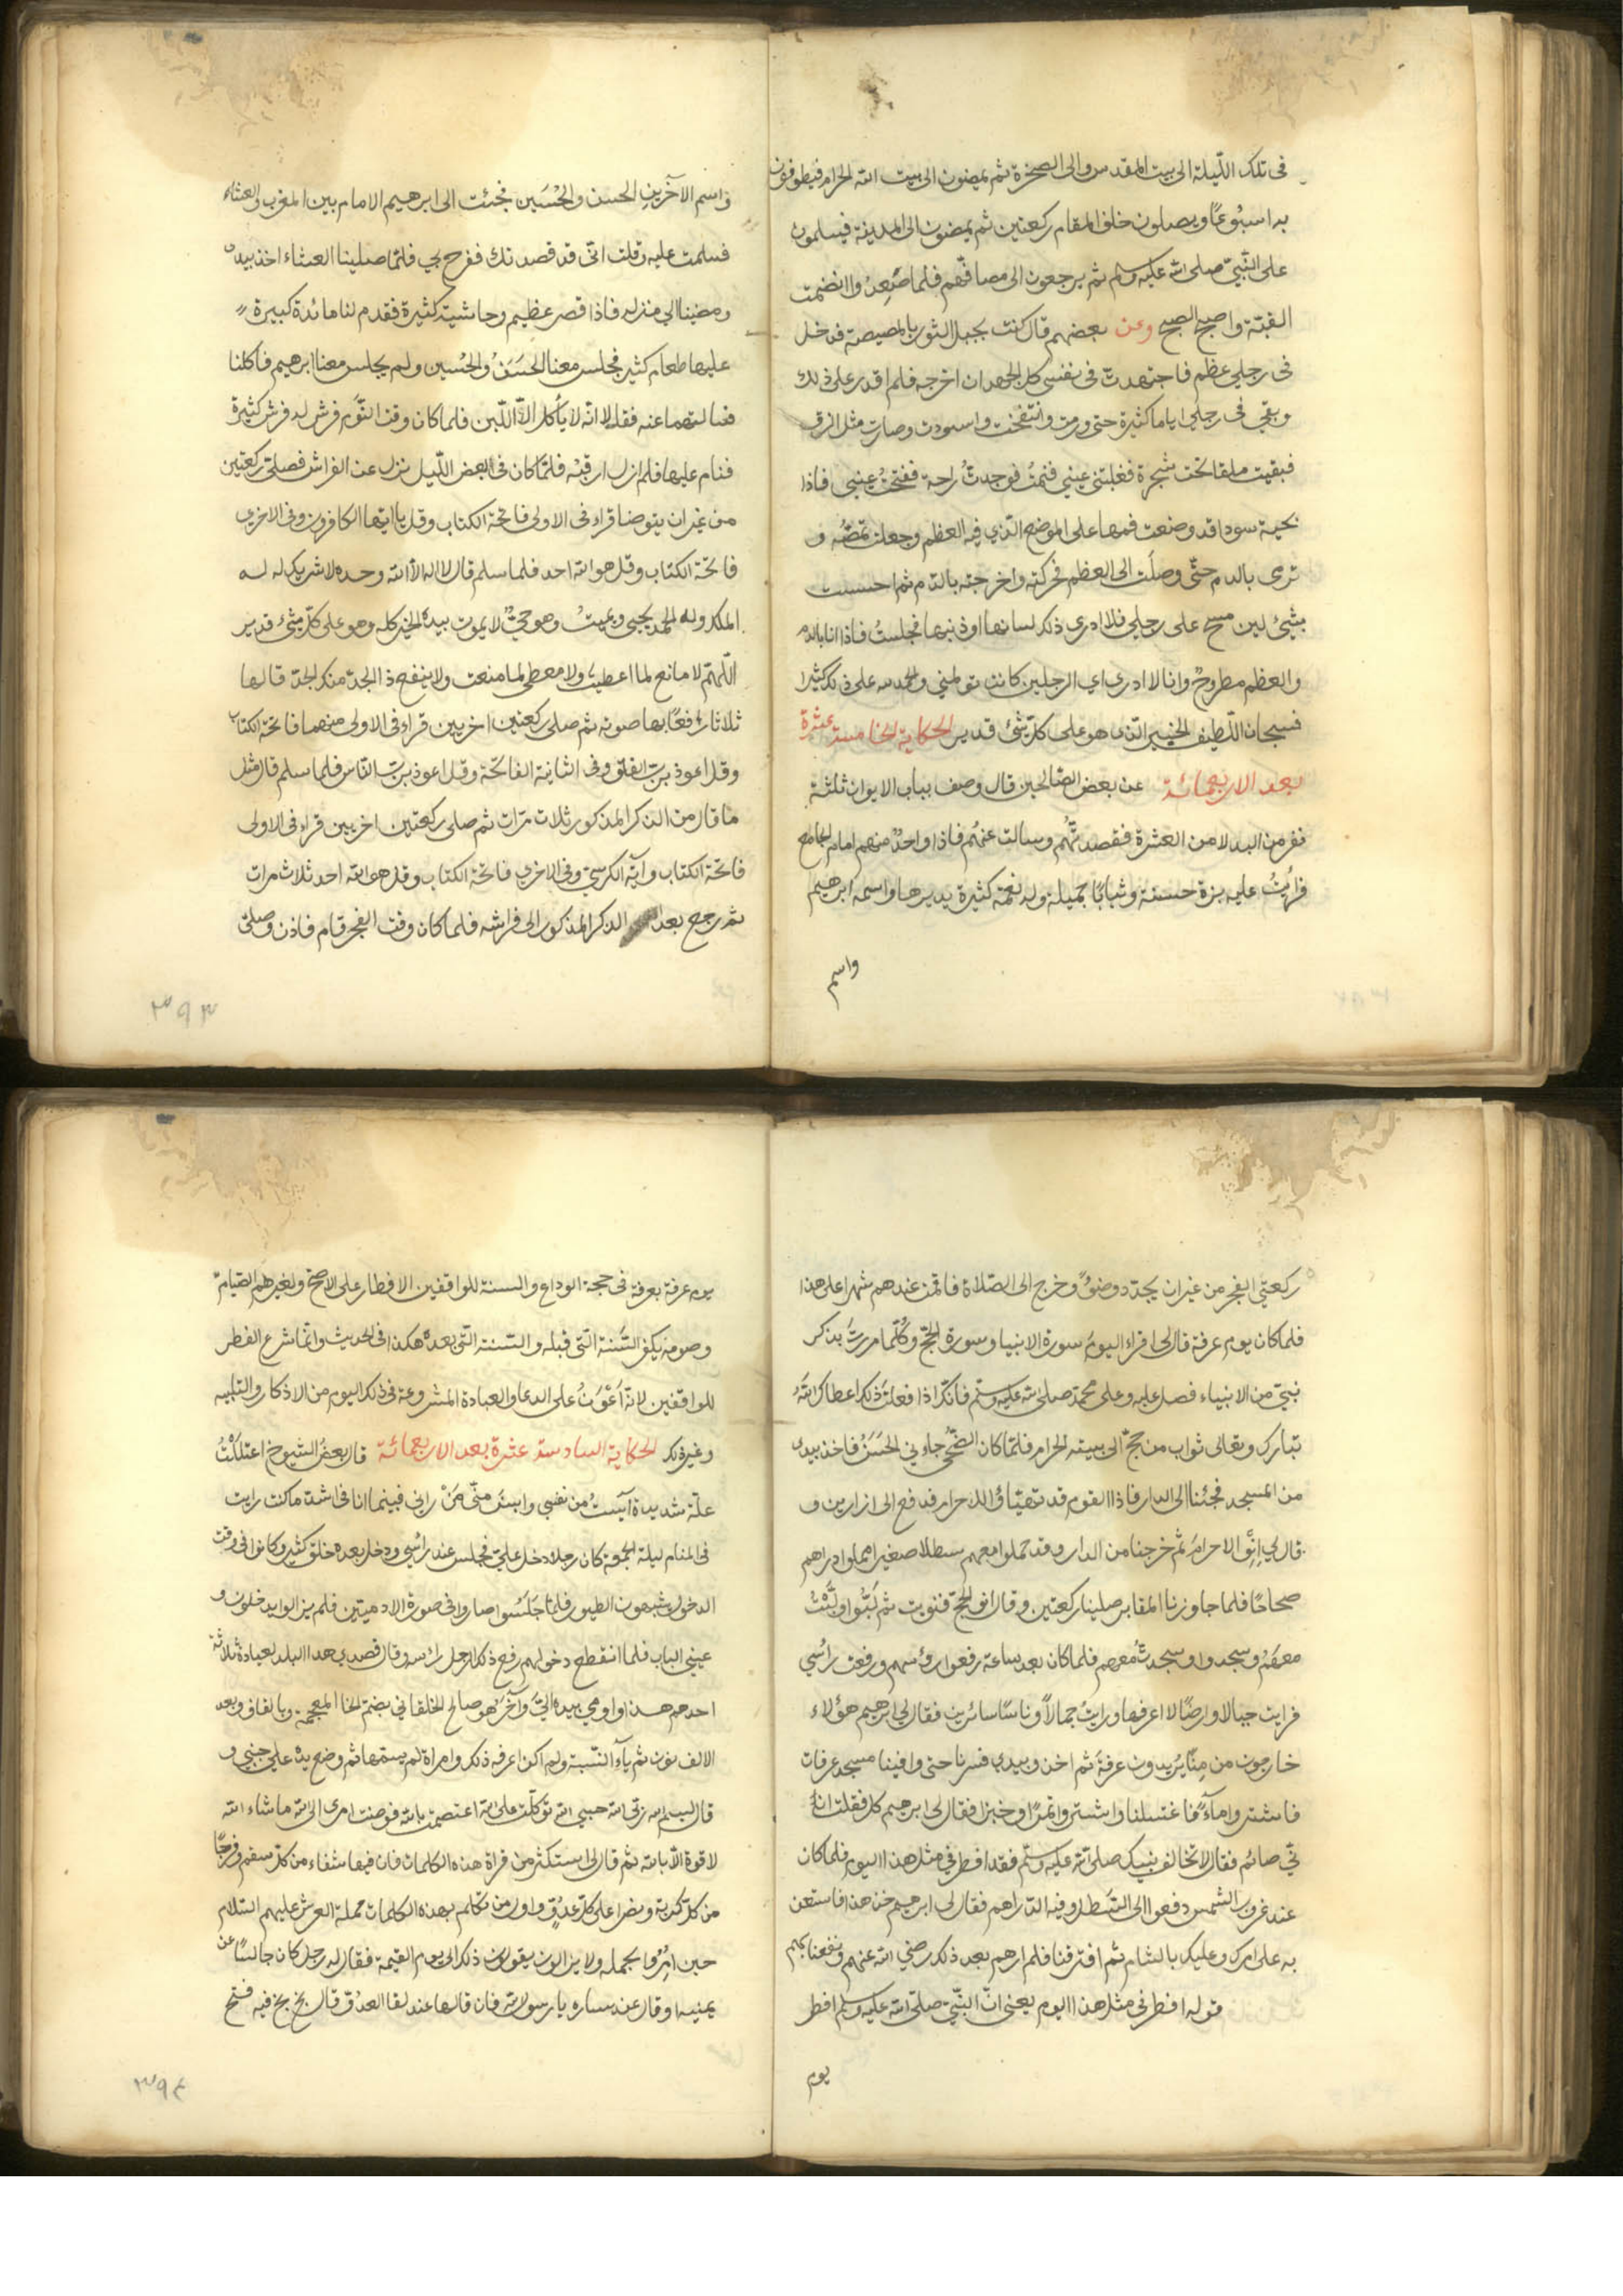 في تلك اللّيلة الى بيت المقدس والى الصخرة ثم يمضون الى بيت الله الحرام فيطوفون
به اسبُوعًا ويصلون خلف المقام ركعتين ثم يمضون الى المدينة فيسلمون
على النّبيّ صلى الله عليه وسلم ثم يرجعون الى مصافهم فلما صَعِدُوا انضمت
القبّة واصبح الصبح وعن بعضهم قال كنت بجبل الثور بالمصيصة فدخل
في رجلي عظم فاجتهدت في نفسي كل الجهد ان اخرجه فلم اقدر على ذلك
وبقي في رجلي اياما كثيرة حتى ورمت وانتفخت واسودت وصارت مثل الزق
فبقيت ملقا تحت شجرة فغلبتني عيني فنمتُ فوجدتُ راحة ففتحتُ عيني فاذا
بحية سودا قد وضعت فمها على الموضع الّذي فيه العظم وجعلت تمصّه و
ترمى بالدم حتّى وصلَت الى العظم فحركته واخرجته بالدّم ثم احسست
بشيئ لين مسح على رجلي فلا ادرى ذلك لسانها او ذنبها فجلستُ فاذا انا بالدم
والعظم مطروحٌ وانا لا ادرى اى الرجلين كانت تولمني والحمد لله على ذلك كثيرا
فسبحان اللّطيف الخبير الّذى هو على كلّ شئ قدير الحكاية الخامسة عشرة
بعد الاربعمائة عن بعض الصّالحين قال وصف بباب الايوان ثلثة
نفر من البدلا من العشرة فقصدتُهُم وسالت عنهُم فاذا واحدٌ منهم امام الجامع
فرايْتُ عليه بزة حسنة وثيابًا جميلة وله نعمة كثيرة يديرها واسمه ابرهيم
واسم
واسم الآخَرَينِ الحسن والحُسَين فجئت الى ابرهيم الامام بين المغرب والعشاء
فسلمت عليه وقلت انّى قد قصدتك ففرح بي فلمّا صلينا العشاء اخذ بيدى
ومضينا الي منزله فاذا قصر عظيم وحاشية كثيرة فقدم لنا مائدة كبيرة
عليها طعام كثير فجلس معنا الحَسَنُ والحُسين ولم يجلس معنا ابرهيم فاكلنا
فسالتهما عنه فقالا انّه لا يأكل الّا اللّبن فلما كان وقت النّوم فرش له فرش كثيرة
فنام عليها فلم ازل ارقبُه فلمّا كان في بعض اللّيل نزل عن الفراش فصلّى ركعتين
من غير ان يتوضا قراء في الاولى فاتحة الكتاب وقل يا ايّها الكافرون وفي الاخرى
فاتحة الكتاب وقل هو الله احد فلما سلم قال لا اله الّا الله وحده لا شريك له له
الملك وله الحمد يحيى ويميتُ وهو حيٌّ لا يموت بيده الخير كله وهو على كلّ شئ قدير
اللّهمّ لا مانع لما اعطيت ولا معطي لما منعت ولا ينفع ذا الجدّ منك الجدّ قالها
ثلاثا رافعًا بها صوته ثم صلى ركعتين اخريين قراء في الاولى منهما فاتحة الكتاب
وقل اعوذ بربّ الفلق وفي الثانية الفاتحة وقل اعوذ بربّ النّاس فلما سلم قال مثل
ما قال من الذكر المذكور ثلاث مرّات ثم صلى ركعتين اخريين قراء في الاولى
فاتحة الكتاب وآية الكرسيّ وفي الاخرى فاتحة الكتاب وقل هو الله احد ثلاث مرات
ثم رجع بعد الذكر المذكور الى فراشه فلما كان وقت الفجر قام فاذن وصلّى
٣٩٣
ركعتي الفجر من غير ان يجدّد وضوءً وخرج الى الصّلاة فاقمت عندهم شهرا على هذا
فلما كان يوم عرفة قال لى اقراء اليومَ سورة الانبيا وسورة الحجّ وكُلّما مررتَ بذكر
نبيّ من الانبياء فصل عليه وعلى محمّد صلى الله عليه وسلّم فانّك اذا فعلتَ ذلك اعطاك اللهُ
تبارك وتعالى ثواب من حجّ الى بيته الحرام فلمّا كان الضّحى جاءني الحَسَنُ فاخذ بيدى
من المسجد فجئنا الى الدار فاذا القوم قد تهيّاوا للاحرام فدفع الى ازارين و
قال لي انو الاحرامَ ثم خرجنا من الدار وقد حملوا معهم سطلا صغيرا مملوا دراهم
صحاحًا فلما جاوزنا المقابر صلينا ركعتين وقال انو الحجّ فنويت ثم لَبَّوا ولبَّيْتُ
معَهُم وسجدوا وسجدتُ معهم فلما كان بعد ساعة رفعوا رؤسهم ورفعت رأسي
فرايت جبالا وارضًا لا اعرفها ورايتُ جمالًا وناسًا سائرين فقال لي ابرهيم هؤلاء
خارجون من مِنًا يُريدون عرفةَ ثم اخذ بيدي فسرنا حتى وافينا مسجد عرفات
فاشتروا ماءً فاغتسلنا واشتروا تمرًا وخبزا فقال لى ابرهيم كل فقلت انا
نيّ صائم فقال لا تخالف نبيك صلى الله عليه وسلّم فقد افطر في مثل هذا اليوم فلما كان
عند غروب الشمس دفعوا الى السَّطل وفيه الدّراهم فقال لى ابرهيم خذ هذا فاستعن
به على امرك وعليك بالشام ثم افترقنا فلم ارهم بعد ذلك رضي الله عنهم ونفعنا بهم
قوله افطر في مثل هذا اليوم يعنى انّ النّبيّ صلّى الله عليه وسلم افطر
يوم
يوم عرفة بعرفة في حجة الوداع والسنة للواقفين الافطار على الاصح ولغيرهم الصّيام
وصومه يكفر السَّنة الّتي قبله والسّنة التّي بعده هكذا في الحديث وانّما شرع الفطر
للواقفين لانّه اَعْوَنُ على الدعا والعبادة المشروعة في ذلك اليوم من الاذكار والتلبيه
وغير ذلك الحكاية السادسة عشرة بعد الاربعمائة قال بعضُ الشّيوخ اعتلَلْتُ
علّة شديدة آيستُ من نفسي وايسَ منّى مَنْ رانى فبينما انا في اشد ما كنت رايت
في المنام ليلة الجمعة كان رجلا دخل عليّ فجلس عند رأسي ودخل بعده خلق كثير وكانوا في وقت
الدخول يشبهون الطيور فلمّا جَلَسُوا صاروا في صورة الادميّين فلم يزالوا يدخلون و
عيني الباب فلما انقطع دخولهم رفع ذلك الرجل رأسه وقال قصدى هذا البلد لعيادة ثلاثة
احدهم هذا واومى بيده اليَّ وآخر هو صالح الخلقاني بضمّ الخا المعجمة وبالقاف وبعد
الالف نون ثم ياء النّسبة ولم اكن اعرفه ذلك وامراة لم يسمّها ثم وضع يده علي جنبي و
قال بسم الله ربّى الله حسبي الله توكّلت على الله اعتصمت بالله فوضت امرى الى الله ما شاء الله
لا قوة الّا بالله ثم قال لى استكثر من قراة هذه الكلمات فان فيها شفاء من كلّ سقم وفرجًا
من كلّ كربة ونصرا على كلّ عدُوٍّ واول من تكلم بهذه الكلمات حملة العرش عليهم السّلام
حين اُمِرُوا بحمله ولا يزالون يقولون ذلك الى يوم القيمة فقال له رجل كان جالسًا عن
يمينه او قال عند يساره يا رسول الله فان قالها عند لقا العدوّ قال بخ بخ فيه فتح
٣٩٤